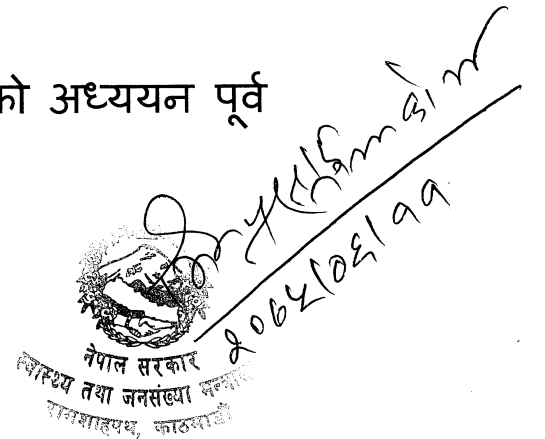 को अध्ययन पूर्व
२०६५/०६/११
नेपाल सरकार
स्वास्थ्य तथा जनसंख्या मन्त्रालय
रामशाहपथ, काठमाडौं